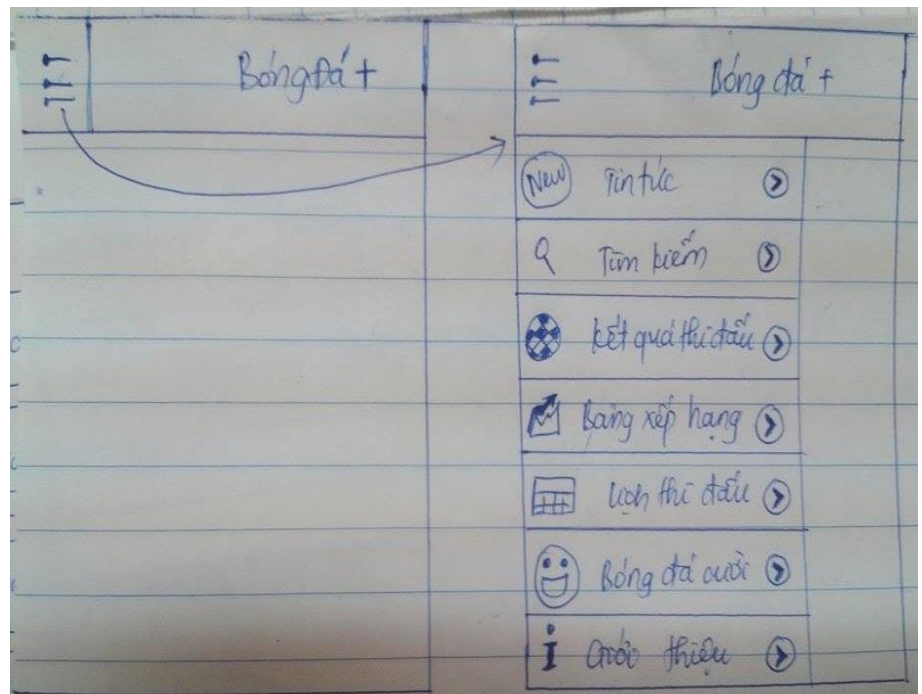 Bóng Đá +
Bóng đá +
New Tin tức
Tìm kiếm
Kết quả thi đấu
Bảng xếp hạng
Lịch thi đấu
Bóng đá cười
i Giới thiệu